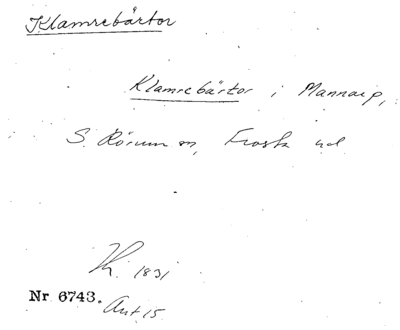 Klamrebärtor
Klamrebärtor i Mannarp,
S. Rörum sn, Frosta hd
Kr. 1831
Nr 6743. Ant 15